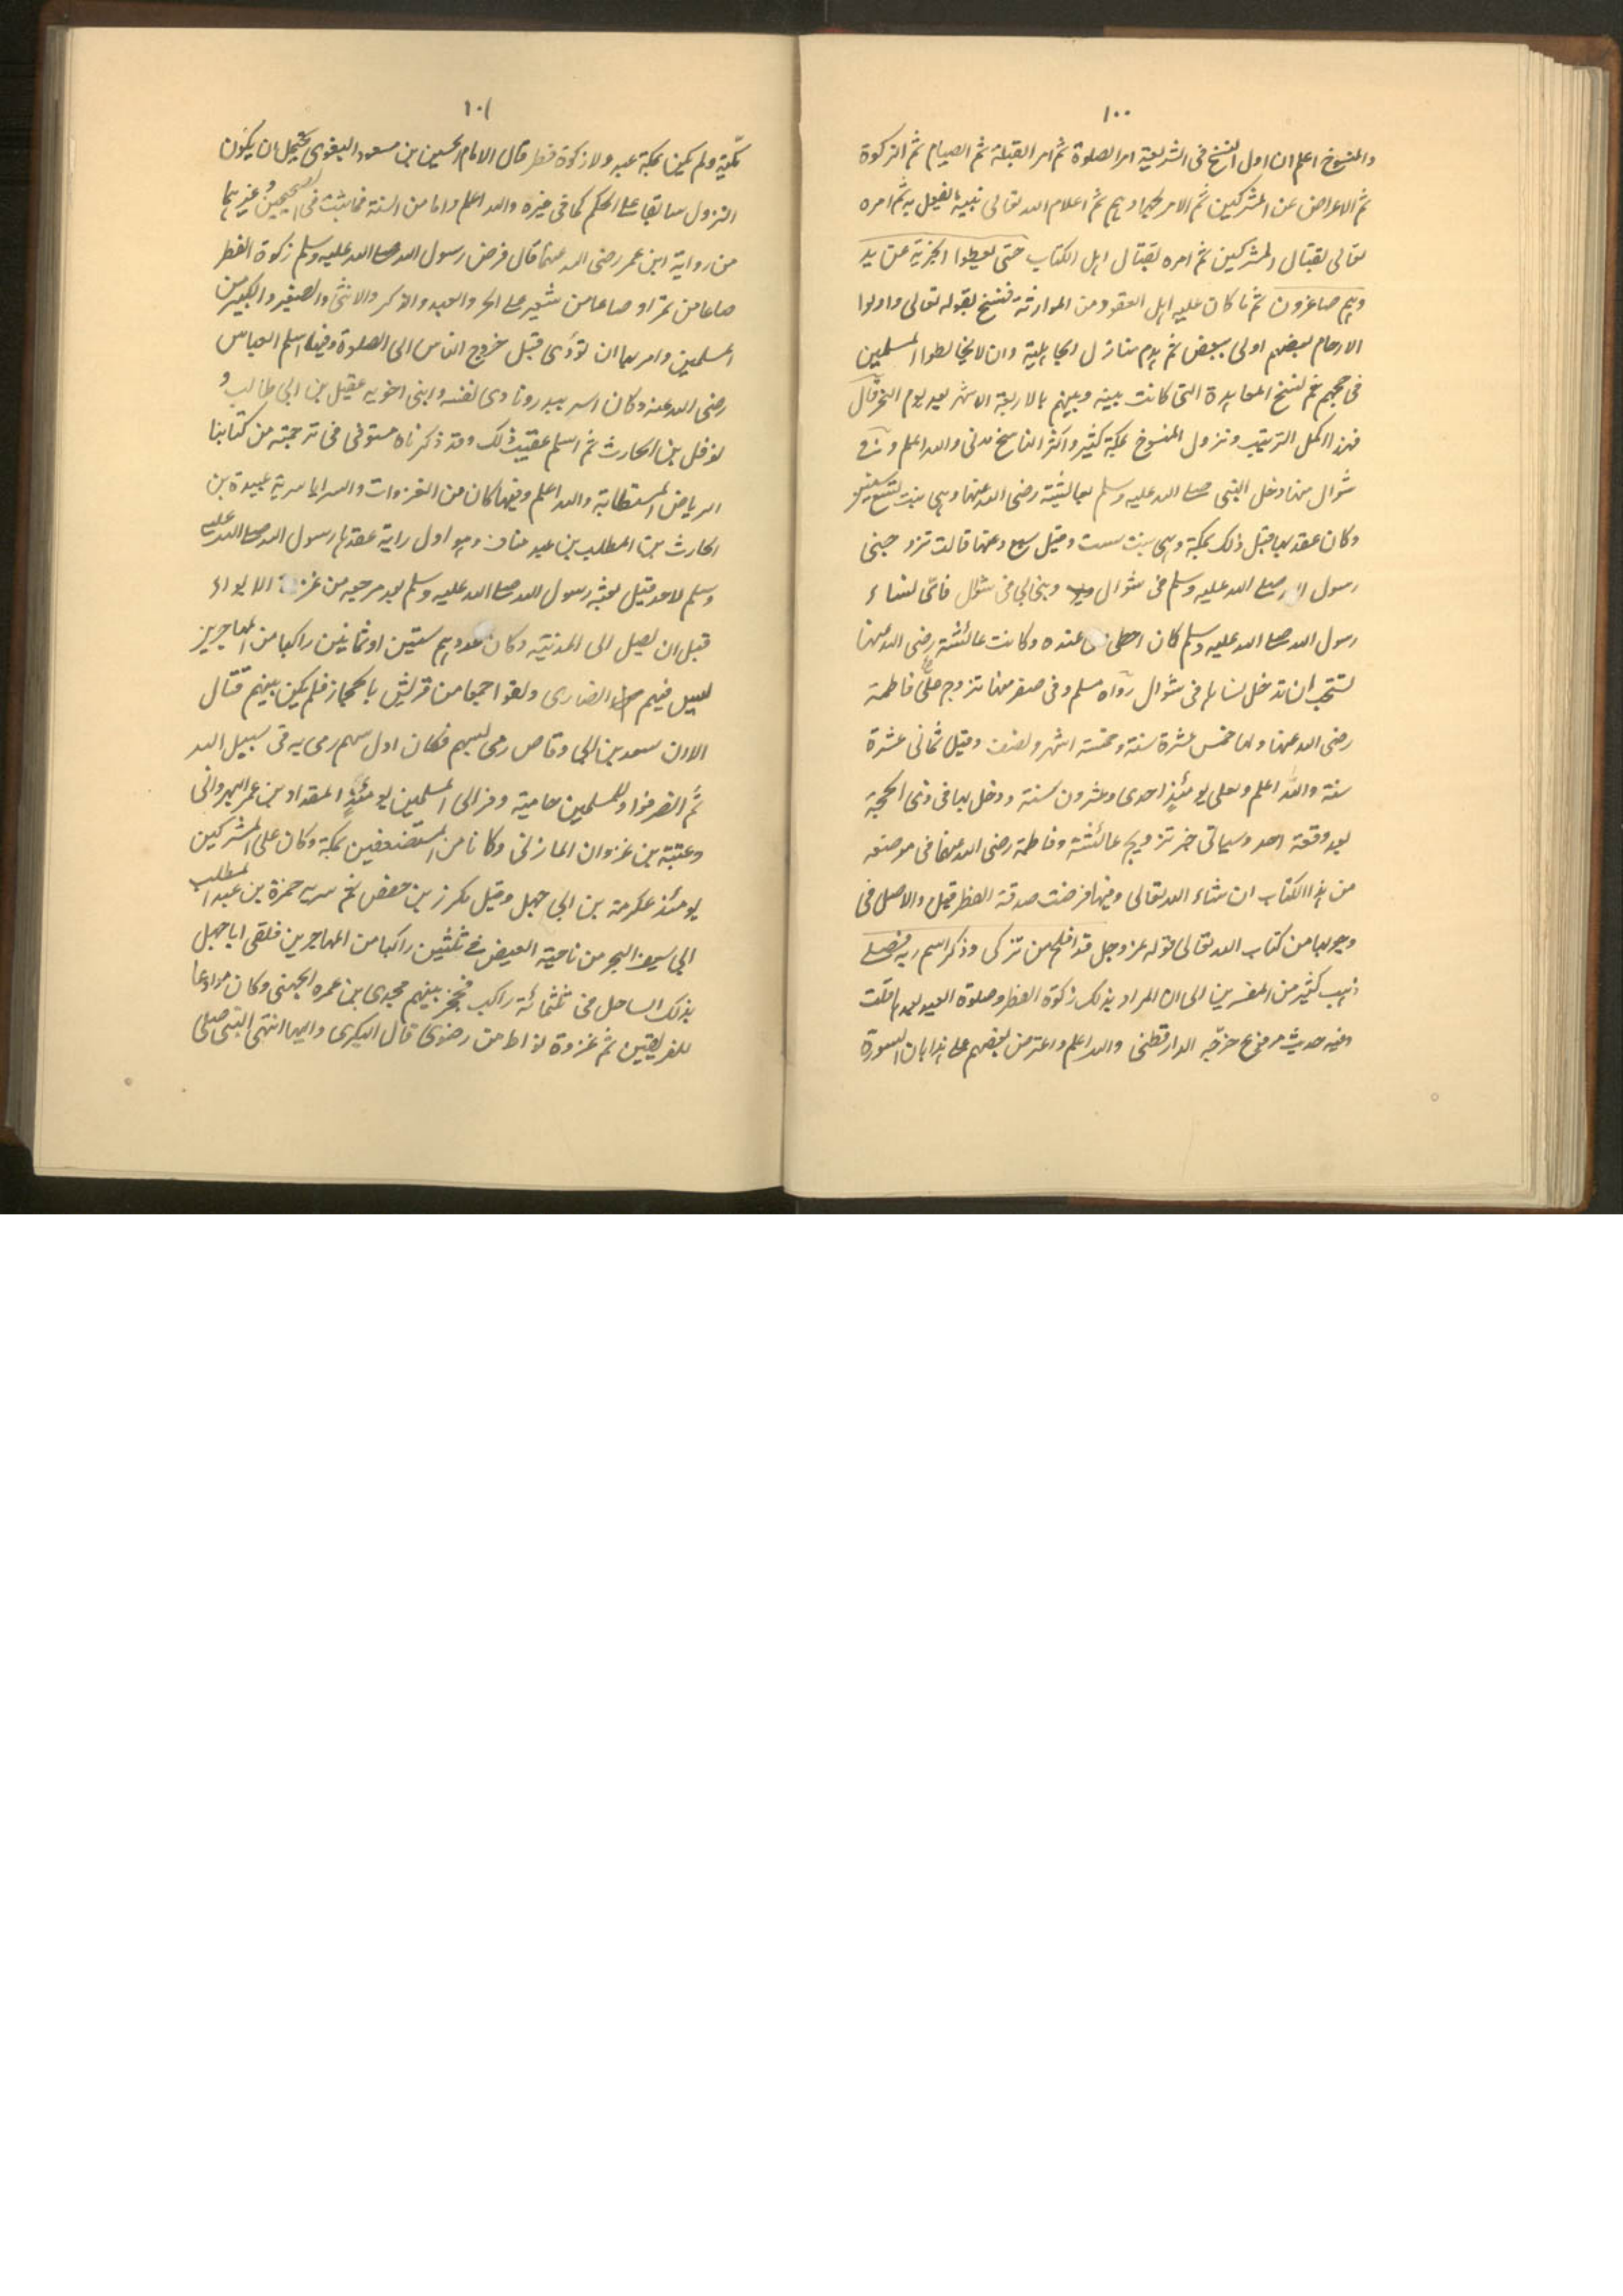 ١٠٠
والمنسوخ اعلم ان اول النسخ فى الشريعة امر الصلوة ثم امر القبلة ثم الصيام ثم الزكوة
ثم الاعراض عن المشركين ثم الامر بجهادهم ثم اعلام الله تعالى نبيه ما يفعل به ثم امره
تعالى بقتال المشركين ثم امره بقتال اهل الكتاب حتى يعطوا الجزية عن يد
وهم صاغرون ثم ما كان عليه اهل العقود من الموارثة فنسخ بقوله تعالى واولوا
الارحام بعضهم اولى ببعض ثم هدم منازل الجاهلية وان لا يخالطوا المسلمين
فى حجهم ثم نسخ المعاهدة التى كانت بينه وبينهم بالاربعة الاشهر بعد يوم النحر قال
فهذا اكمل الترتيب ونزول المنسوخ بمكة كثير واكثر الناسخ مدنى والله اعلم وفى
شوال منها دخل النبى صلى الله عليه وسلم بعائشة رضى الله عنها وهى بنت تسع سنين
وكان عقد بها قبل ذلك بمكة وهى بنت ست وقيل سبع وعنها قالت تزوجنى
رسول الله صلى الله عليه وسلم فى شوال وبنى بى فى شوال فاى نساء
رسول الله صلى الله عليه وسلم كان احظى عنده وكانت عائشة رضى الله عنها
تستحب ان تدخل نساءها فى شوال رواه مسلم وفى صفر منها تزوج على فاطمة
رضى الله عنها ولها خمس عشرة سنة وخمسة اشهر ونصف وقيل ثمانى عشرة
سنة والله اعلم ولعلى يومئذ احدى وعشرون سنة ودخل بها فى ذى الحجة
بعد وقعة احد وسياتى خبر تزويج عائشة وفاطمة رضى الله عنهما فى موضعه
من هذا الكتاب ان شاء الله تعالى وفيها فرضت صدقة الفطر قيل والاصل فى
وجوبها من كتاب الله تعالى قوله عز وجل قد افلح من تزكى وذكر اسم ربه فصلى
ذهب كثير من المفسرين الى ان المراد بذلك زكوة الفطر وصلوة العيد بعدها قلت
وفيه حديث مرفوع خرّجه الدارقطنى والله اعلم واعترض بعضهم على هذا بان السورة
١٠١
مكّية ولم يكن بمكة عيد ولا زكوة فطر قال الامام الحسين بن مسعود البغوى يحتمل ان يكون
النزول سابقا على الحكم كما فى غيره والله اعلم واما من السنة فما ثبت فى الصحيحين وغيرهما
من رواية ابن عمر رضى الله عنهما قال فرض رسول الله صلى الله عليه وسلم زكوة الفطر
صاعا من تمر او صاعا من شعير على الحر والعبد والذكر والانثى والصغير والكبير من
المسلمين وامر بها ان تؤدى قبل خروج الناس الى الصلوة وفيها اسلم العباس
رضى الله عنه وكان اسر ببدر وفادى نفسه وابنى اخويه عقيل بن ابى طالب و
نوفل بن الحارث ثم اسلم عقيب ذلك وقد ذكرناه مستوفى فى ترجمته من كتابنا
الرياض المستطابة والله اعلم وفيها كان من الغزوات والسرايا سرية عبيدة بن
الحارث بن المطلب بن عبد مناف وهو اول راية عقدها رسول الله صلى الله عليه
وسلم لاحد قيل بعثه رسول الله صلى الله عليه وسلم بعد مرجعه من غزوة الابواء
قبل ان يصل الى المدينة وكان عددهم ستين او ثمانين راكبا من المهاجرين
ليس فيهم انصارى ولقوا جمعا من قريش بالحجاز فلم يكن بينهم قتال
الا ان سعد بن ابى وقاص رمى بسهم فكان اول سهم رمى به فى سبيل الله
ثم انصرفوا وللمسلمين حامية وفر الى المسلمين يومئذ المقداد بن عمر البهرانى
وعتبة بن غزوان المازنى وكانا من المستضعفين بمكة وكان على المشركين
يومئذ عكرمة بن ابى جهل وقيل مكرز بن حفص ثم سرية حمزة بن عبد المطلب
الى سيف البحر من ناحية العيص فى ثلثين راكبا من المهاجرين فلقى ابا جهل
بذلك الساحل فى ثلثمائة راكب فحجز بينهم مجدى بن عمرو الجهنى وكان موادعا
للفريقين ثم غزوة بواط من رضوى قال البكرى واليها انتهى النبى صلى